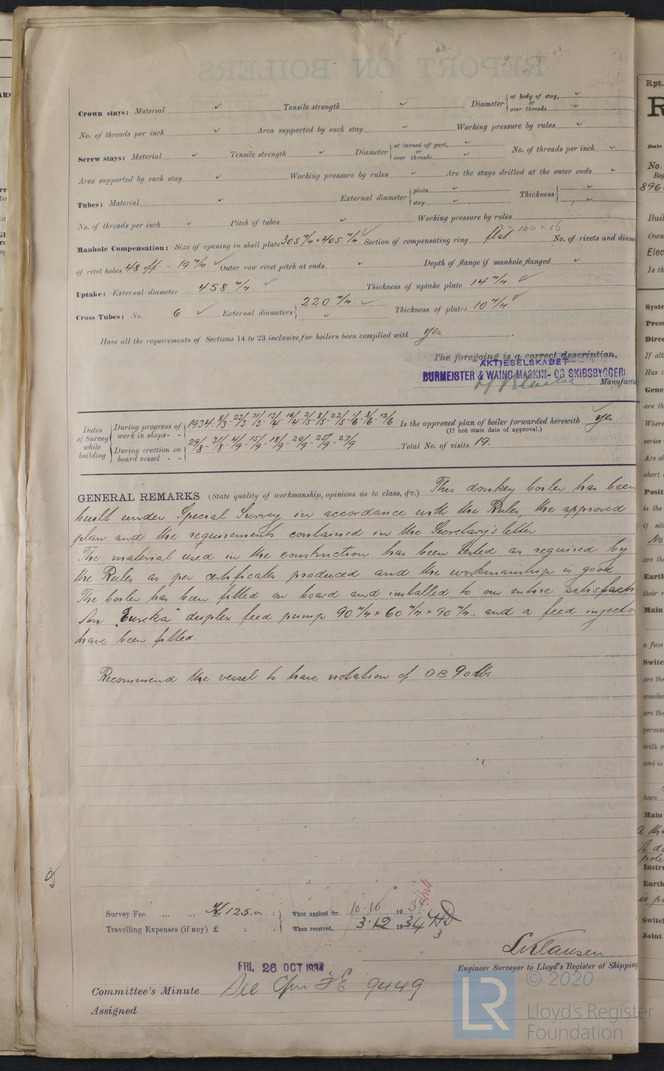 Crown stays: Material ✓ Tensile strength ✓ Diameter { at body of stay, ✓ or over threads ✓
No. of threads per inch ✓ Area supported by each stay ✓ Working pressure by rules ✓
Screw stays: Material ✓ Tensile strength ✓ Diameter { at turned off part, ✓ or over threads ✓ No. of threads per inch ✓
Area supported by each stay ✓ Working pressure by rules ✓ Are the stays drilled at the outer ends ✓
Tubes: Material ✓ External diameter { plain ✓ stay ✓ Thickness { ✓ ✓
No. of threads per inch ✓ Pitch of tubes ✓ Working pressure by rules ✓
Manhole Compensation: Size of opening in shell plate 305 m/m × 405 m/m ✓ Section of compensating ring flat No. of rivets and diam
of rivet holes 48 off - 19 m/m ✓ Outer row rivet pitch at ends ✓ Depth of flange if manhole flanged ✓
Uptake: External diameter 458 m/m ✓ Thickness of uptake plate 14 m/m ✓
Cross Tubes: No. 6 ✓ External diameters { 220 m/m ✓ Thickness of plates 10 m/m ✓
Have all the requirements of Sections 14 to 23 inclusive for boilers been complied with yes
The foregoing is a correct description,
AKTIESELSKABET
BURMEISTER & WAINS MASKIN- OG SKIBSBYGGERI
Manufactu
Dates of Survey while building { During progress of work in shops - - 1934 Is the approved plan of boiler forwarded herewith yes
(If not state date of approval.)
During erection on board vessel - - 29/8 31/8 4/9 15/9 18/9 20/9 25/9 27/9 Total No. of visits 19.
GENERAL REMARKS (State quality of workmanship, opinions as to class, &c.) This donkey boiler has been
built under Special Survey in accordance with the Rules, the approved
plan and the requirements contained in the Secretary's letter
The material used in the construction has been tested as required by
the Rules as per certificates produced and the workmanship is good.
The boiler has been fitted on board and installed to our entire satisfacti
One "Eureka" duplex feed pump 90 m/m × 60 m/m × 90 m/m and a feed injecto
have been fitted.
Recommend the vessel to have notation of D.B. 90 lbs.
Survey Fee ... ... 125.00 : } When applied for, 10.10 1934
Travelling Expenses (if any) £ : : } When received, 3.12 1934
Engineer Surveyor to Lloyd's Register of Shipping
FRI. 26 OCT 1934
Committee's Minute 9449
Assigned
© 2020
LR Lloyd's Register
Foundation
REPORT ON BOILERS
Rpt.
R
Date
No.
896
Buil
Own
Elec
Is th
Syste
Pres
Direc
If alt
Has t
Gene
are th
Where
series
Are al
short
Posit
is the
Earth
their r
Main
a fuse
Switc
are the
permar
with w
and is
Main
Instr
Earth
Switc
Joint